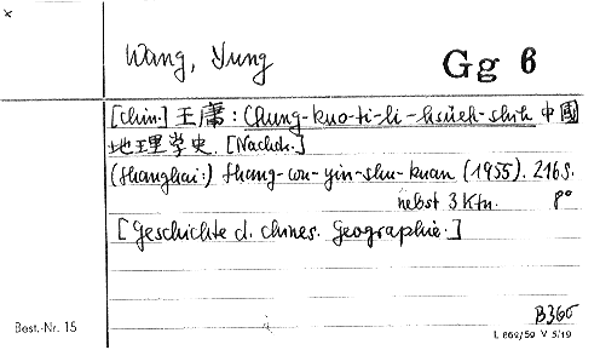 ×
Wang, Yung
Gg 6
[chin.] 王庸: Chung-kuo-ti-li-hsüeh-shih 中國
地理学史. [Nachdr.]
(Shanghai:) Shang-wu-yin-shu-kuan (1955). 216 S.
nebst 3 Ktn. 8°
[Geschichte d. chines. Geographie.]
B365
Best.-Nr. 15
L 869/59 V 5/19